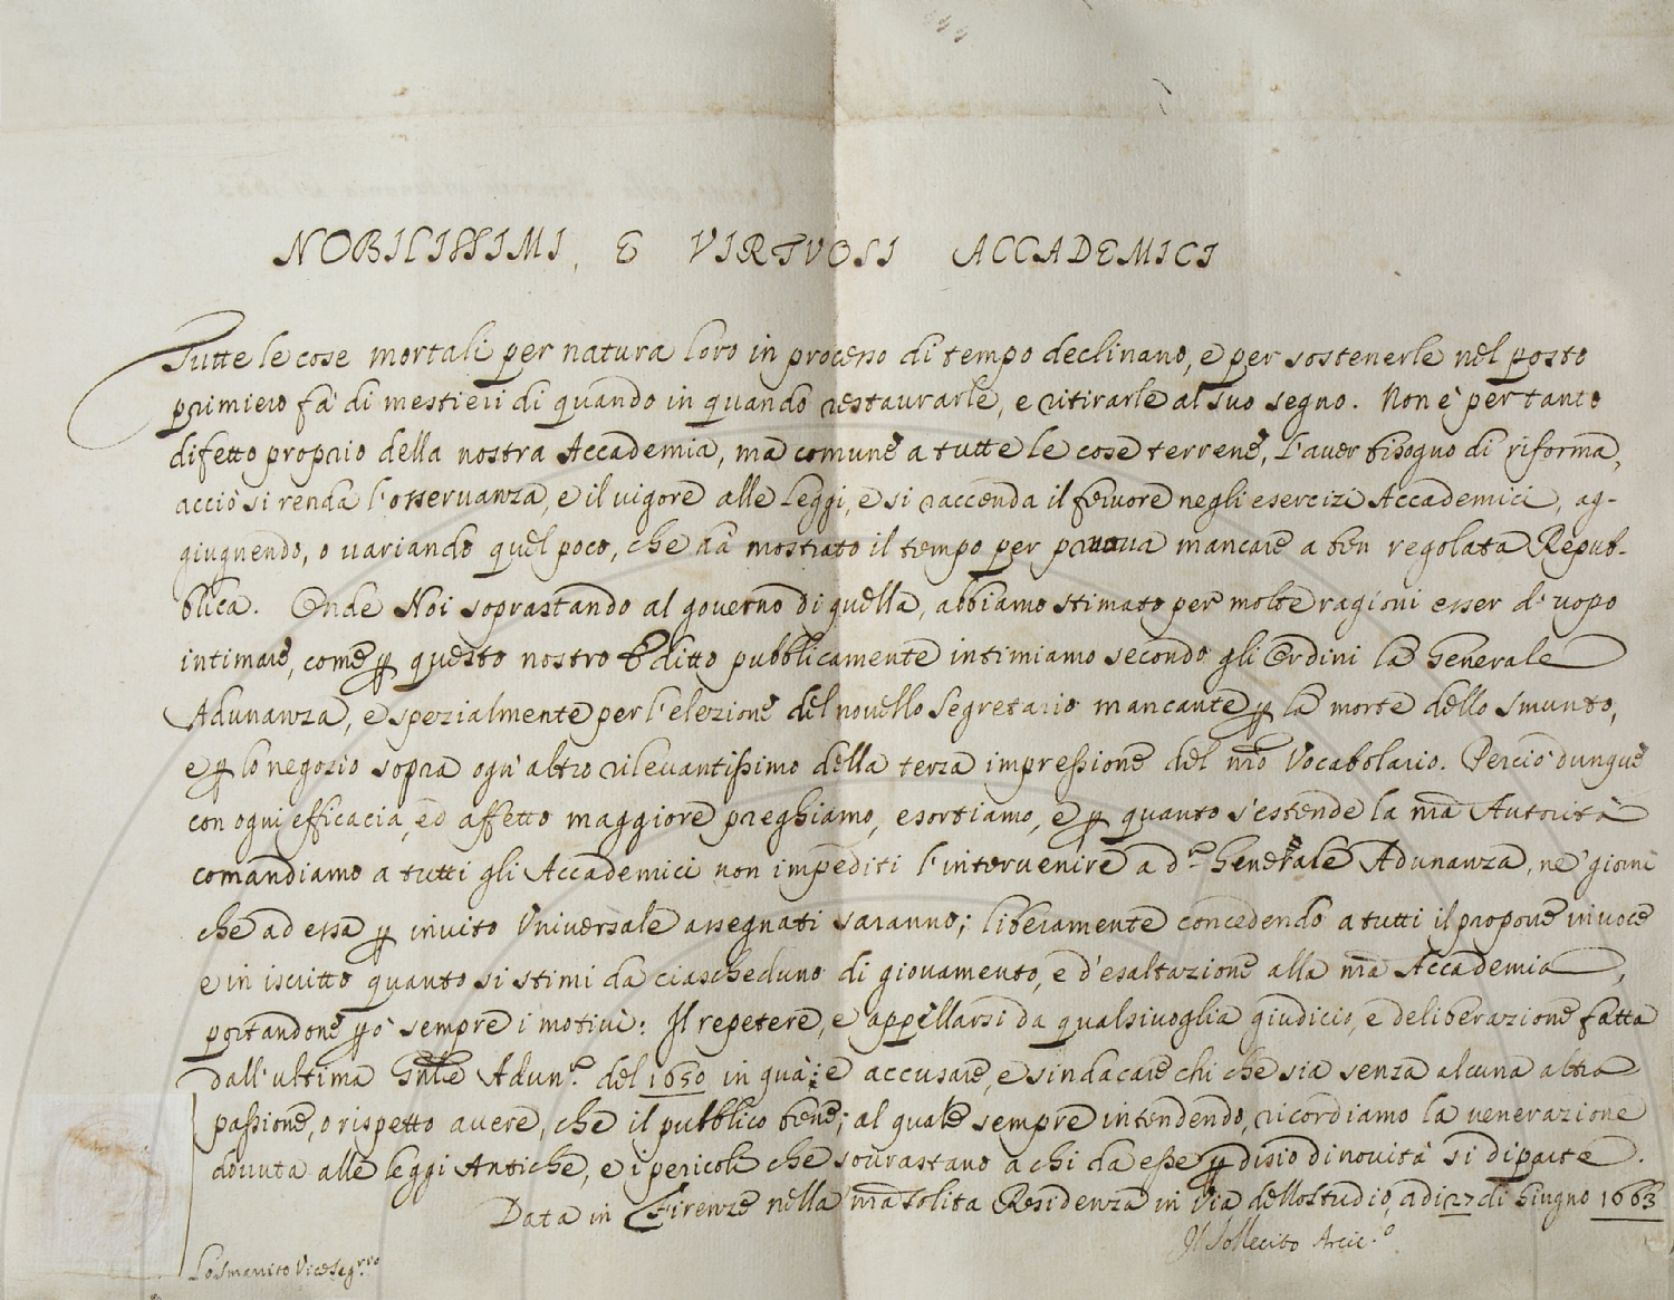 NOBILISSIMI, E VIRTVOSI ACCADEMICI
Tutte le cose mortali per natura loro in processo di tempo declinano, e per sostenerle nel posto
primiero fa di mestieri di quando in quando restaurarle, e ritirarle al suo segno. Non è per tanto
difetto proprio della nostra Accademia, ma comune a tutte le cose terrene, l'aver bisogno di riforma,
acciò si renda l'osservanza, e il vigore alle Leggi, e si raccenda il fervore negli esercizi Accademici, ag-
giugnendo, o variando quel poco, che à mostrato il tempo per pruova mancare a ben regolata Repub-
blica. Onde Noi soprastando al governo di quella, abbiamo stimato per molte ragioni esser d'uopo
intimare, come ꝑ questo nostro Editto pubblicamente intimiamo secondo gli Ordini la Generale
Adunanza, e spezialmente per l'elezione del novello Segretario mancante ꝑ la morte dello Smunto,
e ꝑ lo negozio sopra ogn'altro rilevantissimo della terza impressione del nr̃o Vocabolario. Perciò dunque
con ogni efficacia, ed affetto maggiore preghiamo, esortiamo, e ꝑ quanto s'estende la nr̃a Autorità
comandiamo a tutti gli Accademici non impediti l'intervenire a d.ª Generale Adunanza, ne' giorni
che ad essa ꝑ invito Vniversale assegnati saranno; liberamente concedendo a tutti il proporre in voce
e in iscritto quanto si stimi da ciascheduno di giovamento, e d'esaltazione alla nr̃a Accademia,
portandone ꝑò sempre i motivi: Il repetere, e appellarsi da qualsivoglia giudicio, e deliberazione fatta
dall'ultima Gnl̃e Adun.ª del 1650 in quà: e accusare, e sindacare chi che sia senza alcuna altra
passione, o rispetto avere, che il pubblico bene; al quale sempre intendendo, ricordiamo la venerazione
dovuta alle leggi Antiche, e i pericoli che sovrastano a chi da esse ꝑ disio di novità si diparte.
Data in Firenze nella nr̃a solita Residenza in Via dello Studio, adi 27 di Giugno 1663
Il Sollecito Arcic.º
Lo Smarrito Vice Seg.rio